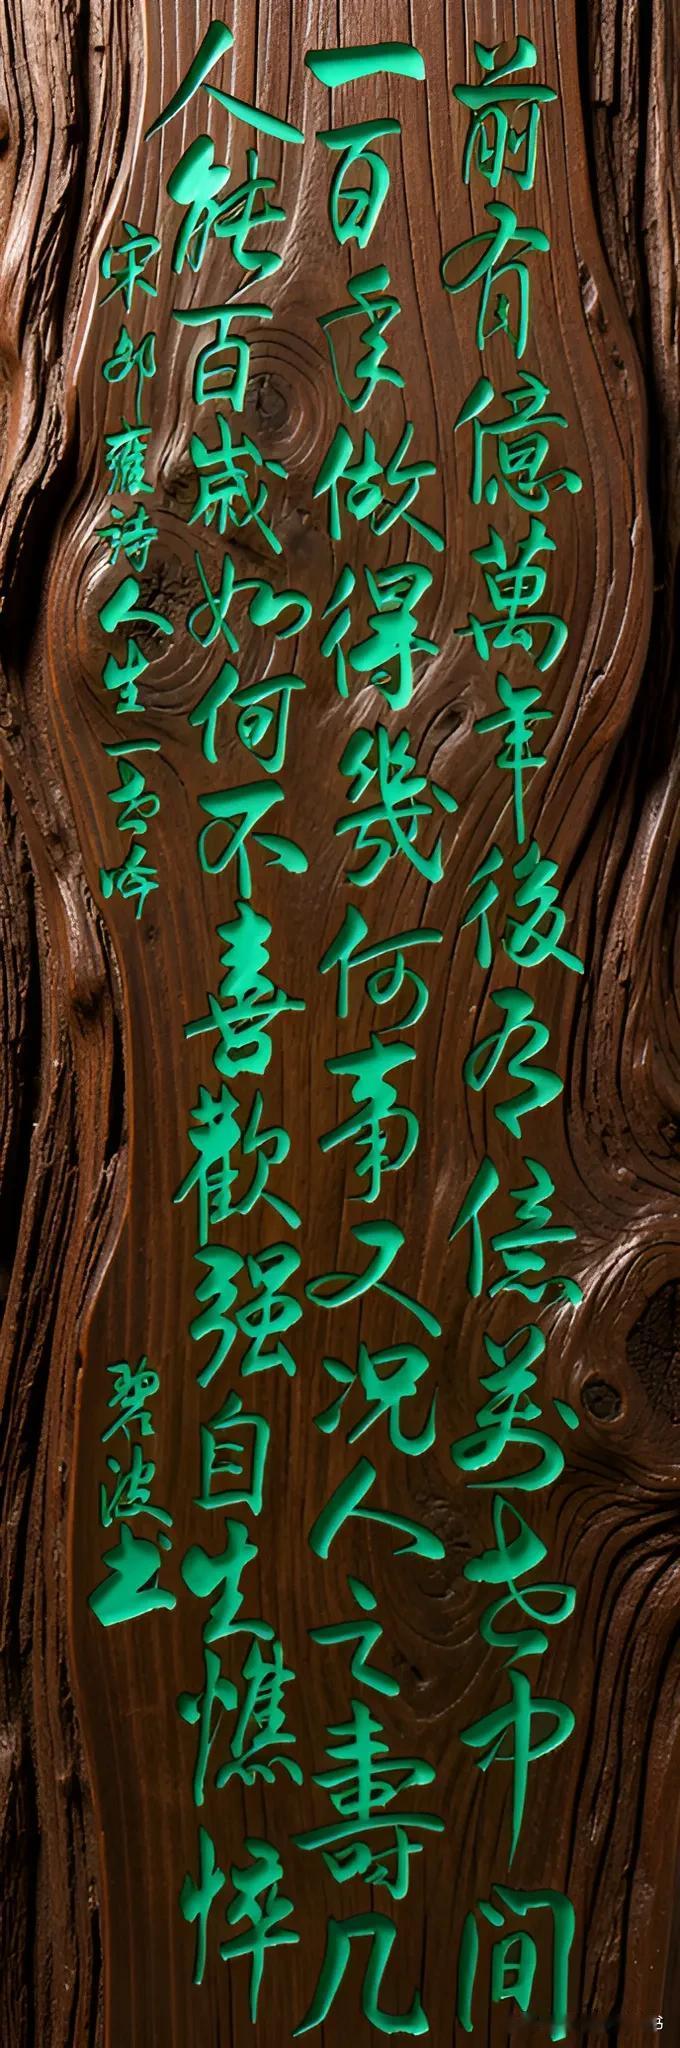 前有億萬年後有億萬世中間
一百年做得幾何事又况人之壽几
人能百歲如何不喜歡强自生憔悴
宋邵雍詩人生一世吟
碧波书